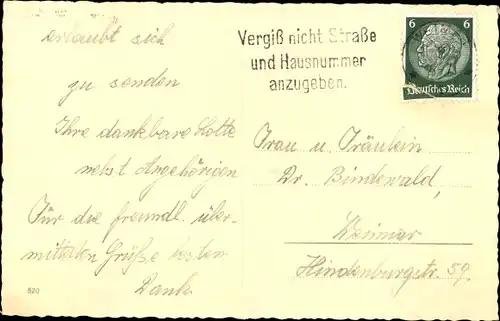 erlaubt sich
zu senden
Ihre dankbare Lotte
nebst Angehörigen
Für die freundl. über-
mittelten Grüße besten
Dank.
520
Vergiß nicht Straße
und Hausnummer
anzugeben.
6 6
Deutsches Reich
Frau u. Fräulein
Dr. Bindewald,
Weimar
Hindenburgstr. 59.